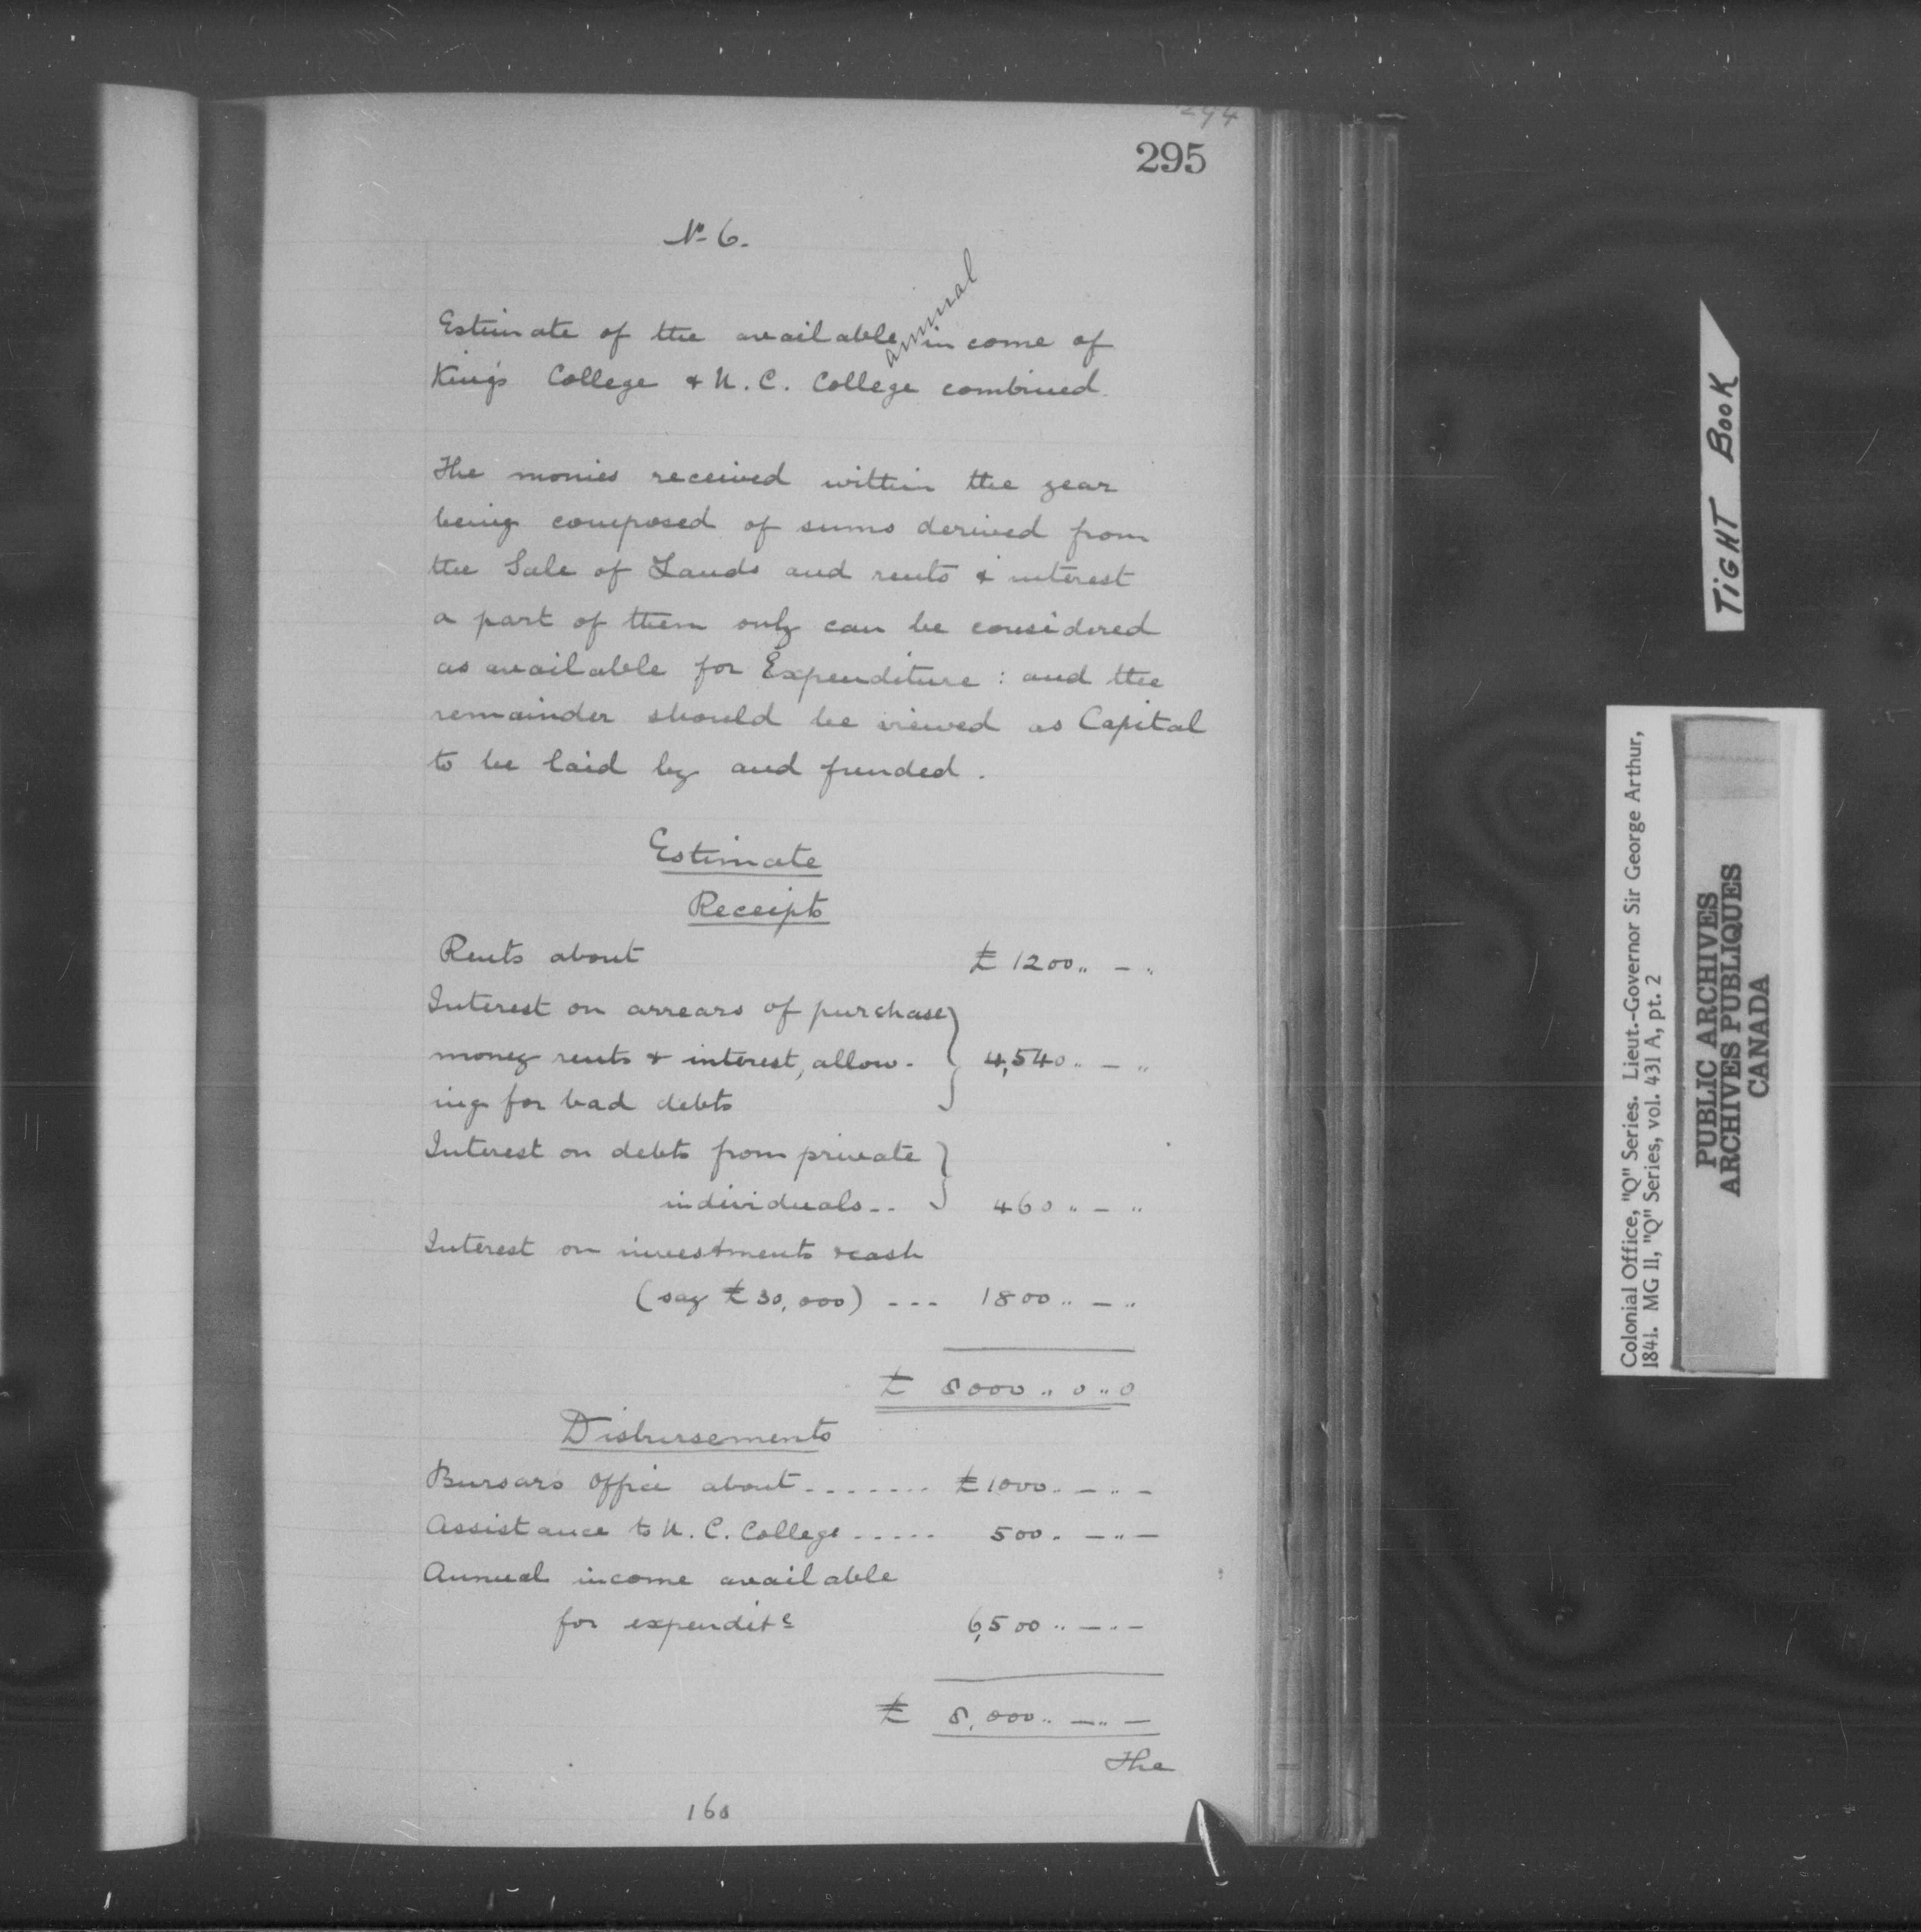 294
295
No 6.
annual
Estimate of the available income of
King's College & U.C. College combined.
The monies received within the year
being composed of sums derived from
the Sale of Lands and rents & interest
a part of them only can be considered
as available for Expenditure : and the
remainder should be viewed as Capital
to be laid by and funded.
Estimate
Receipts
Rents about £ 1200 .. - ..
Interest on arrears of purchase
money rents & interest, allow- 4,540 .. - ..
ing for bad debts
Interest on debts from private
individuals -- 460 .. - ..
Interest on investments & cash
(say £30,000) --- 1800 .. - ..
£ 8000 .. 0 .. 0
Disbursements
Bursars Office about ....... £1000 .. - .. -
Assistance to U.C. College ..... 500 .. - .. -
Annual income available
for expendite 6,500 .. - .. -
£ 8,000 .. - .. -
The
160
TiGHT BooK
Colonial Office, "Q" Series. Lieut.-Governor Sir George Arthur,
1841. MG 11, "Q" Series, vol. 431 A, pt. 2
PUBLIC ARCHIVES
ARCHIVES PUBLIQUES
CANADA